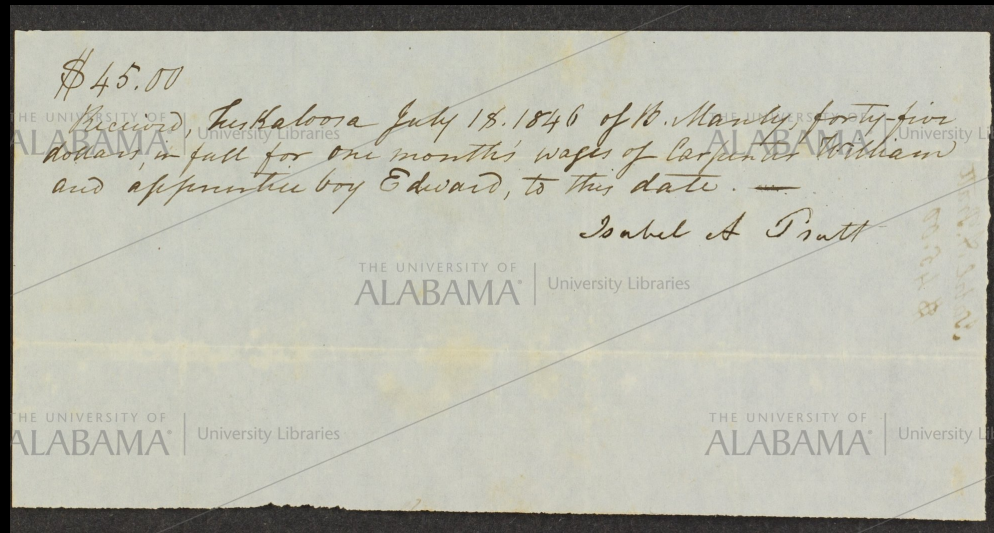 $45.00
Received, Tuskaloosa July 18. 1846 of B. Manly, forty-five
dollars, in full for one month's wages of Carpenter William
and apprentice boy Edward, to this date. —
Isabel A Pratt
THE UNIVERSITY OF ALABAMA University Libraries
THE UNIVERSITY OF ALABAMA University Libraries
THE UNIVERSITY OF ALABAMA University Libraries
THE UNIVERSITY OF ALABAMA University Libraries
THE UNIVERSITY OF ALABAMA University Li